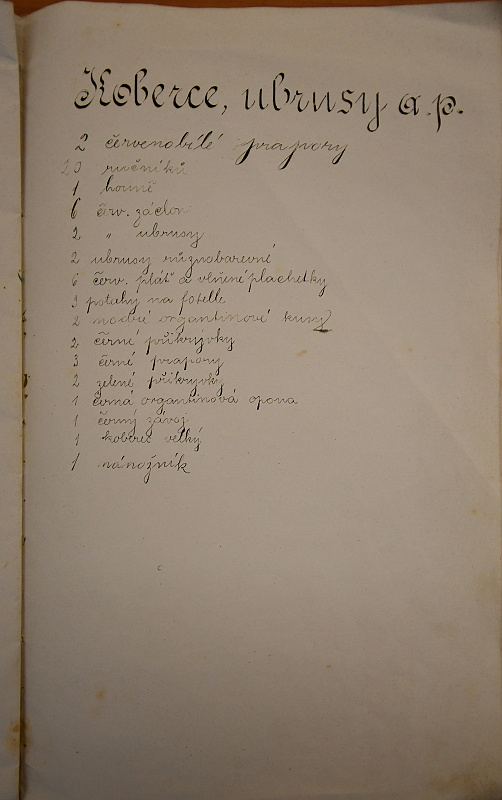 Koberce, ubrusy a.p.
2 červenobílé prapory
20 ručníků
1 houně
6 červ. záclon
2 " ubrusy
2 ubrusy různobarevné
6 červ. plát a vlněné plachetky
3 potahy na fotelle
2 modré organtinové kusy
2 černé přikrývky
3 černé prapory
2 zelené přikrývky
1 černá organtinová opona
1 černý závoj
1 koberec velký
1 nánožník